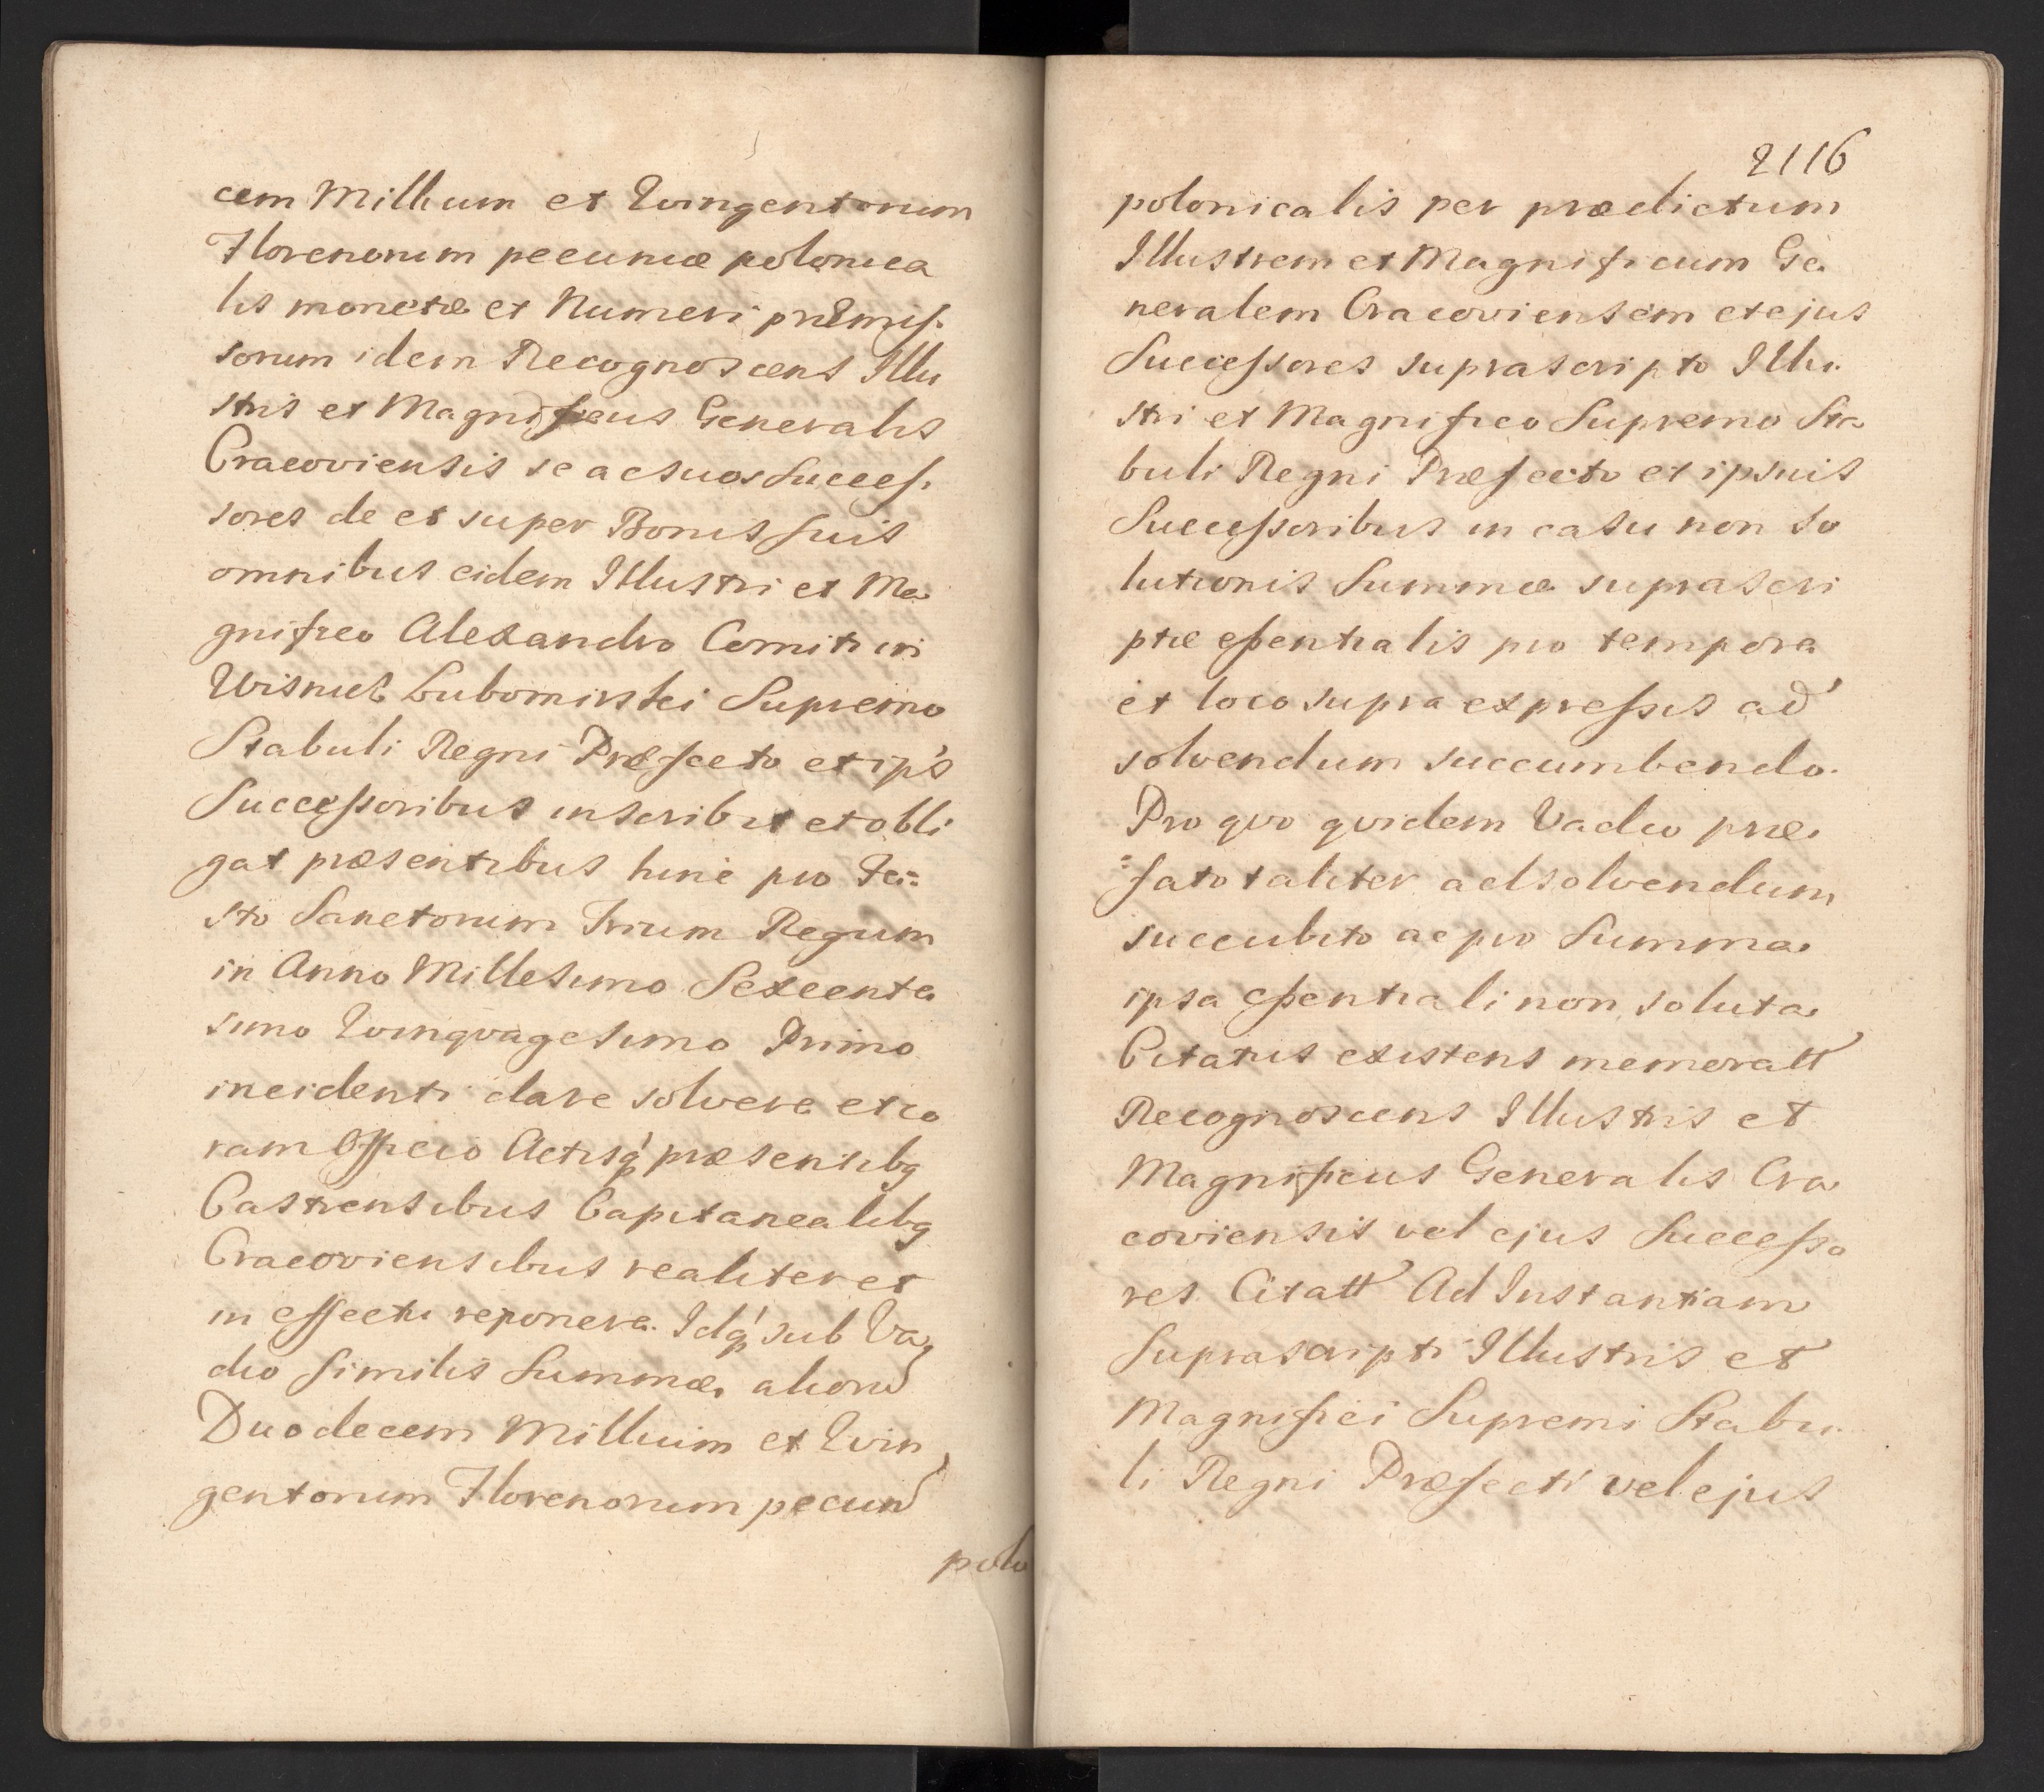 cem Millium et Quingentorum
Florenorum pecuniæ polonica
lis monetæ et Numeri præmis
sorum idem Recognoscens Illu
stris et Magnificus Generalis
Cracoviensis se ac suos Succes
sores de et super Bonis suis
omnibus eidem Illustri et Ma
gnifico Alexandro Comiti in
Wisnicz Lubomirski Supremo
Stabuli Regni Præfecto et ips
Successoribus inscribit et obli
gat præsentibus hinc pro Fe:
sto Sanctorum Trium Regum
in Anno Millesimo Sexcente
simo Quinqvagesimo Primo
incidenti dare solvere et co
ram Officio Actisq́ præsentibg
Castrensibus Capitanealibg
Cracoviensibus realiter et
in effectu reponere. Idq́ sub Va
dio similis Summæ aliorũ
Duodecem Millium et Qvin
gentorum Florenorum pecun
polo
2116
polonicalis per prædictum
Illustrem et Magnificum Ge
neralem Cracoviensem et ejus
Successores suprascripto Illu
stri et Magnifico Supremo Sta
buli Regni Præfecto et ipsuis
Successoribus in casu non so
lutionis Summæ suprascri
ptæ essentialis pro tempore
et loco supra expressis ad
solvendum succumbendo.
Pro qvo qvidem Vadio præ
:fato taliter ad solvendum
succubito ac pro Summa
ipsa essentiali non soluta
Citatus existens memoratt
Recognoscens Illustris et
Magnificus Generalis Cra
coviensis vel ejus Successo
res Citatt Ad Instantiam
Suprascripti Illustris et
Magnifici Supremi Stabu
li Regni Præfecti vel ejus